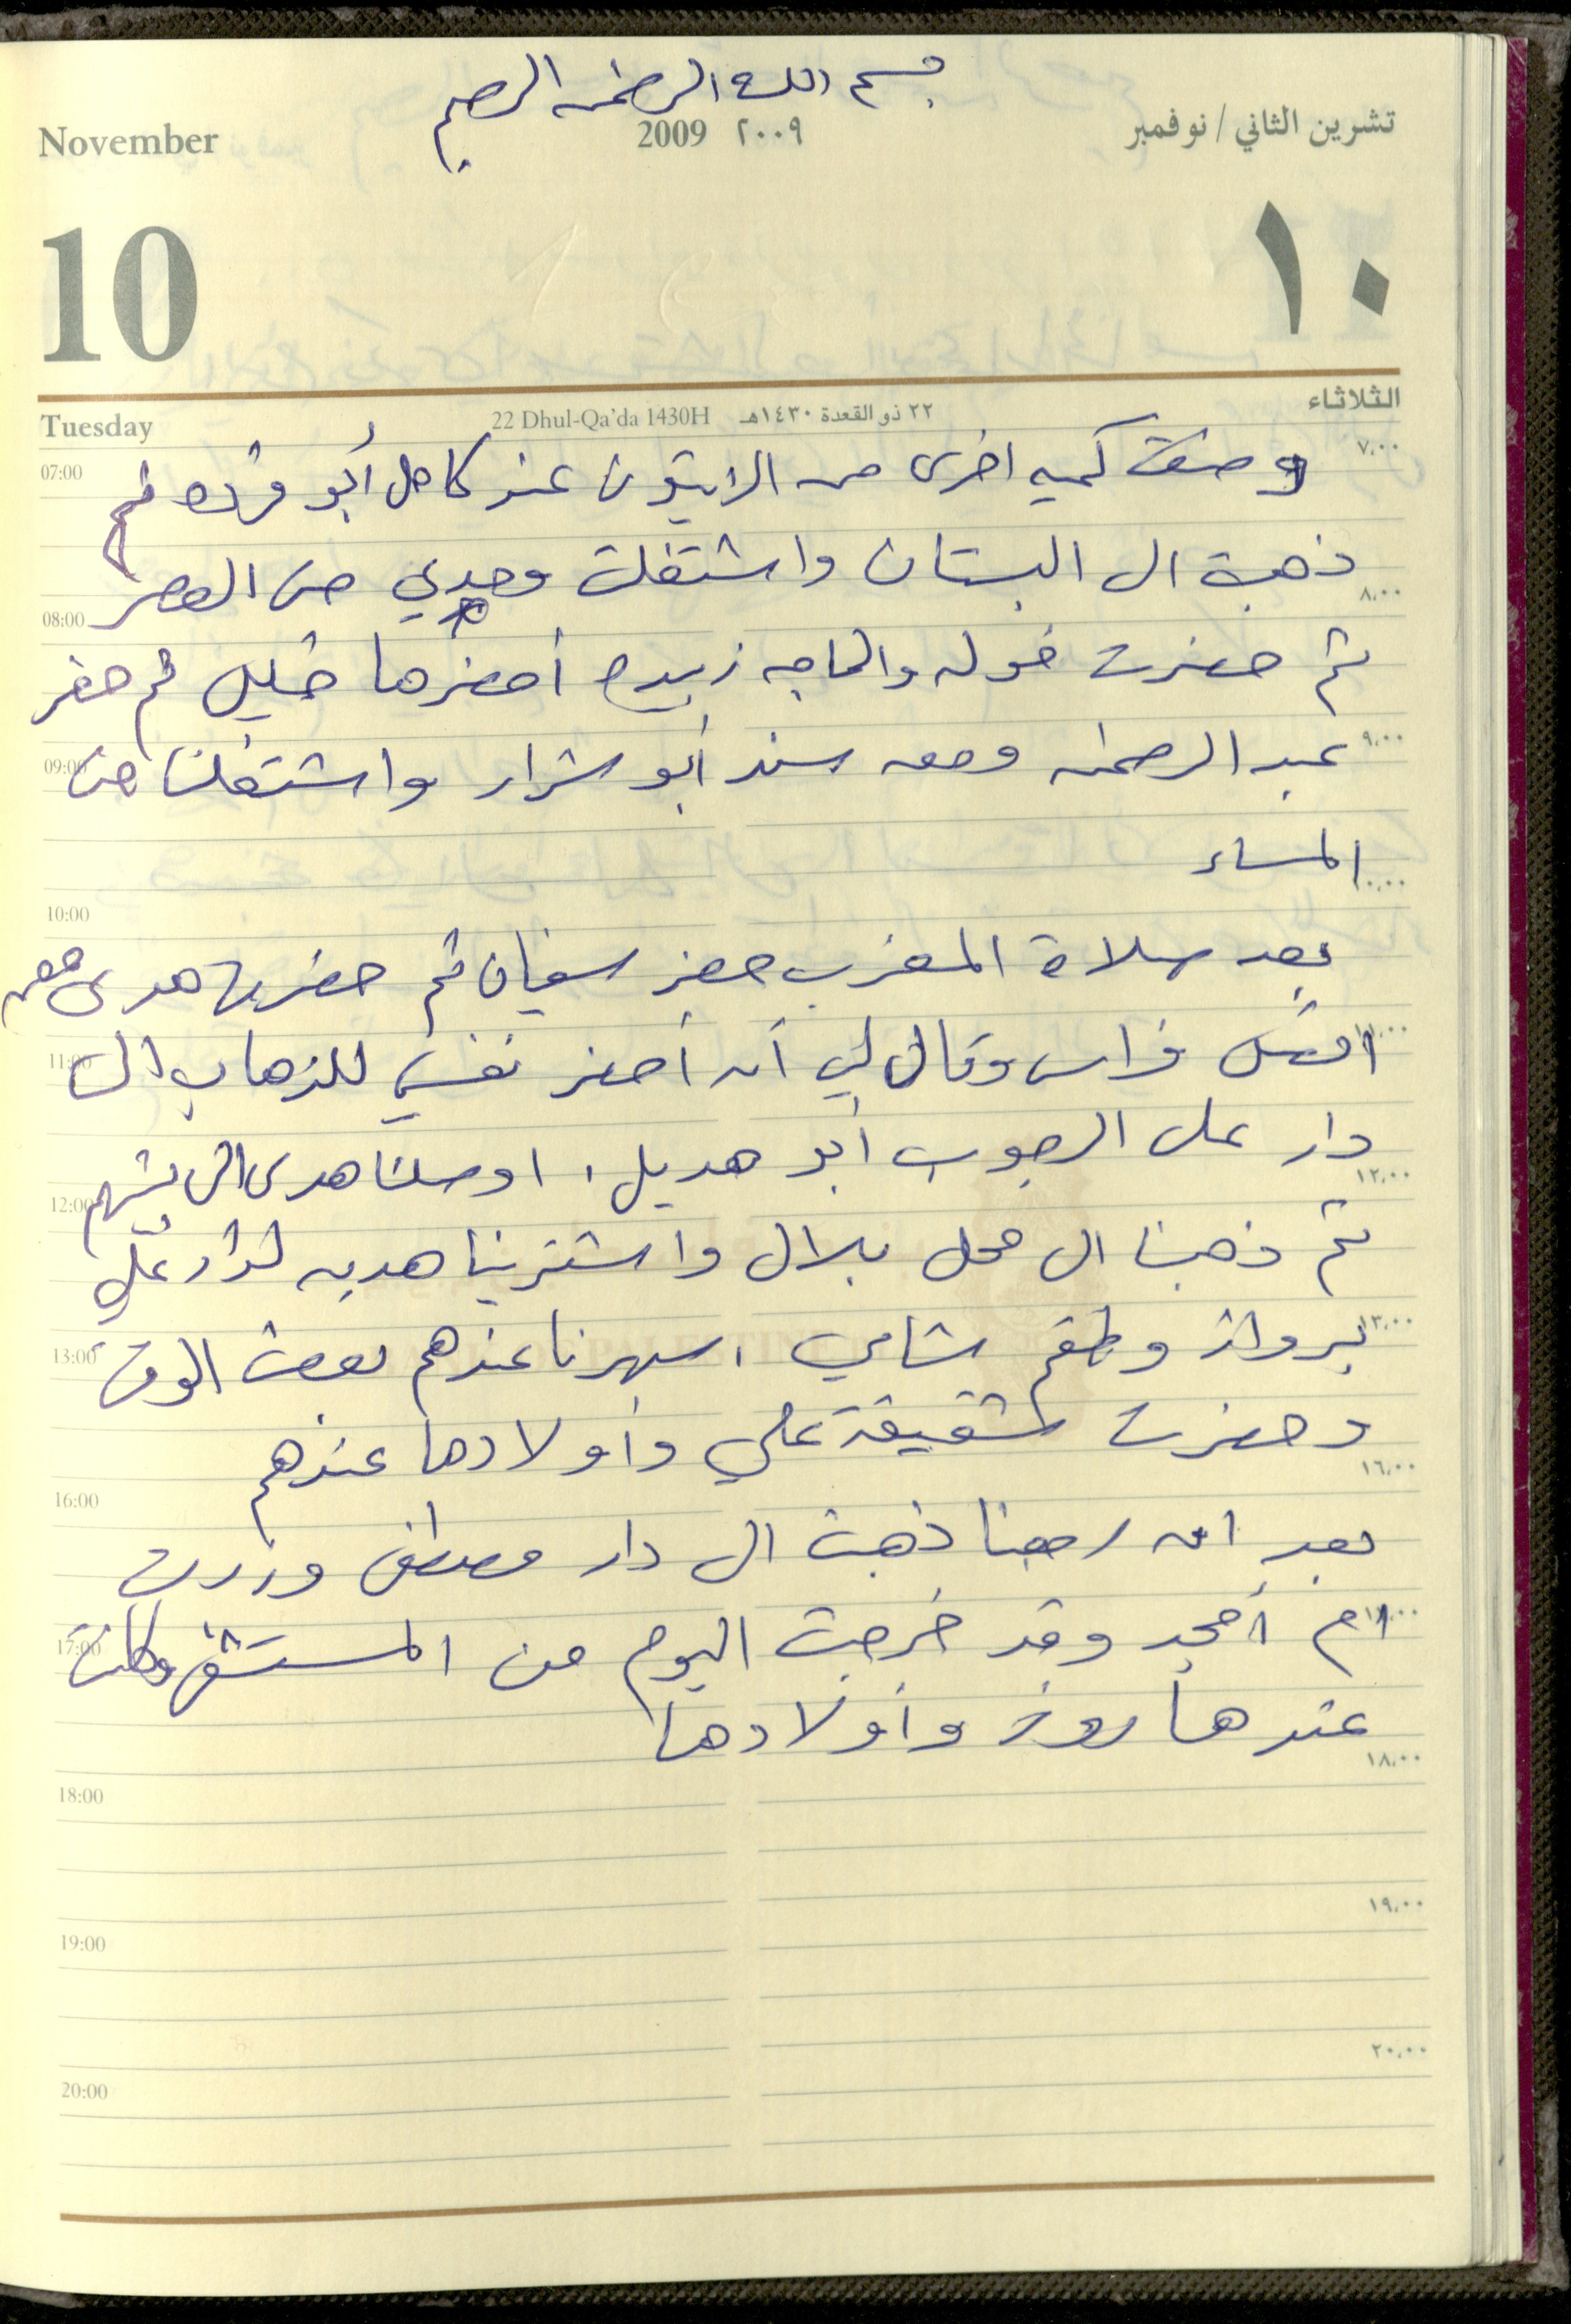 بسم الله الرحمن الرحيم
November 2009 ٢٠٠٩ تشرين الثاني / نوفمبر
10 ١٠
Tuesday 22 Dhul-Qa'da 1430H ٢٢ ذو القعدة ١٤٣٠هـ الثلاثاء
07:00 ٧,٠٠
وضعت كميه اخرى من الزيتون عند كامل أبو قرده ثم
ذهبت الى البستان واشتغلت وحدي حتى العصر
08:00 ٨,٠٠
ثم حضرت خوله والحاجه زبيده أحضرها خليل ثم حضر
عبد الرحمن ومعه سند أبو شرار واشتغلنا حتى
09:00 ٩,٠٠
المساء
10:00 ١٠,٠٠
بعد صلاة المغرب حضر سفيان ثم حضرت هدى معه
اتصل فراس وقال لي أن أحضر نفسي للذهاب الى
11:00 ١١,٠٠
دار علي الرجوب أبو هديل، اوصلنا هدى الى بيتهم
12:00 ١٢,٠٠
ثم ذهبنا الى محل بلال واشترينا هديه لدار علي
برواز وطقم شاي، سهرنا عندهم بعض الوقت
13:00 ١٣,٠٠
وحضرت شقيقة علي وأولادها عندهم
16:00 ١٦,٠٠
بعد ان رجعنا ذهبت الى دار مصطفى وزرت
ام أمجد وقد خرجت اليوم من المستشفى وكانت
17:00 ١٧,٠٠
عندها روز وأولادها
18:00 ١٨,٠٠
19:00 ١٩,٠٠
20:00 ٢٠,٠٠